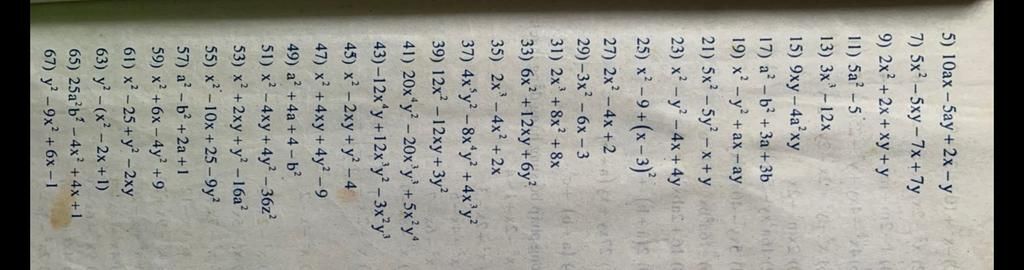 5) 10ax − 5ay + 2x − y
7) 5x² − 5xy − 7x + 7y
9) 2x² + 2x + xy + y
11) 5a² − 5
13) 3x³ − 12x
15) 9xy − 4a²xy
17) a² − b² + 3a + 3b
19) x² − y² + ax − ay
21) 5x² − 5y² − x + y
23) x² − y² − 4x + 4y
25) x² − 9 + (x − 3)²
27) 2x² − 4x + 2
29) −3x² − 6x − 3
31) 2x³ + 8x² + 8x
33) 6x² + 12xy + 6y²
35) 2x³ − 4x² + 2x
37) 4x⁵y² − 8x⁴y² + 4x³y²
39) 12x² − 12xy + 3y²
41) 20x⁴y² − 20x³y³ + 5x²y⁴
43) −12x⁴y + 12x³y² − 3x²y³
45) x² − 2xy + y² − 4
47) x² + 4xy + 4y² − 9
49) a² + 4a + 4 − b²
51) x² − 4xy + 4y² − 36z²
53) x² + 2xy + y² − 16a²
55) x² − 10x + 25 − 9y²
57) a² − b² + 2a + 1
59) x² + 6x − 4y² + 9
61) x² − 25 + y² − 2xy
63) y² − (x² − 2x + 1)
65) 25a²b² − 4x² + 4x + 1
67) y² − 9x² + 6x − 1